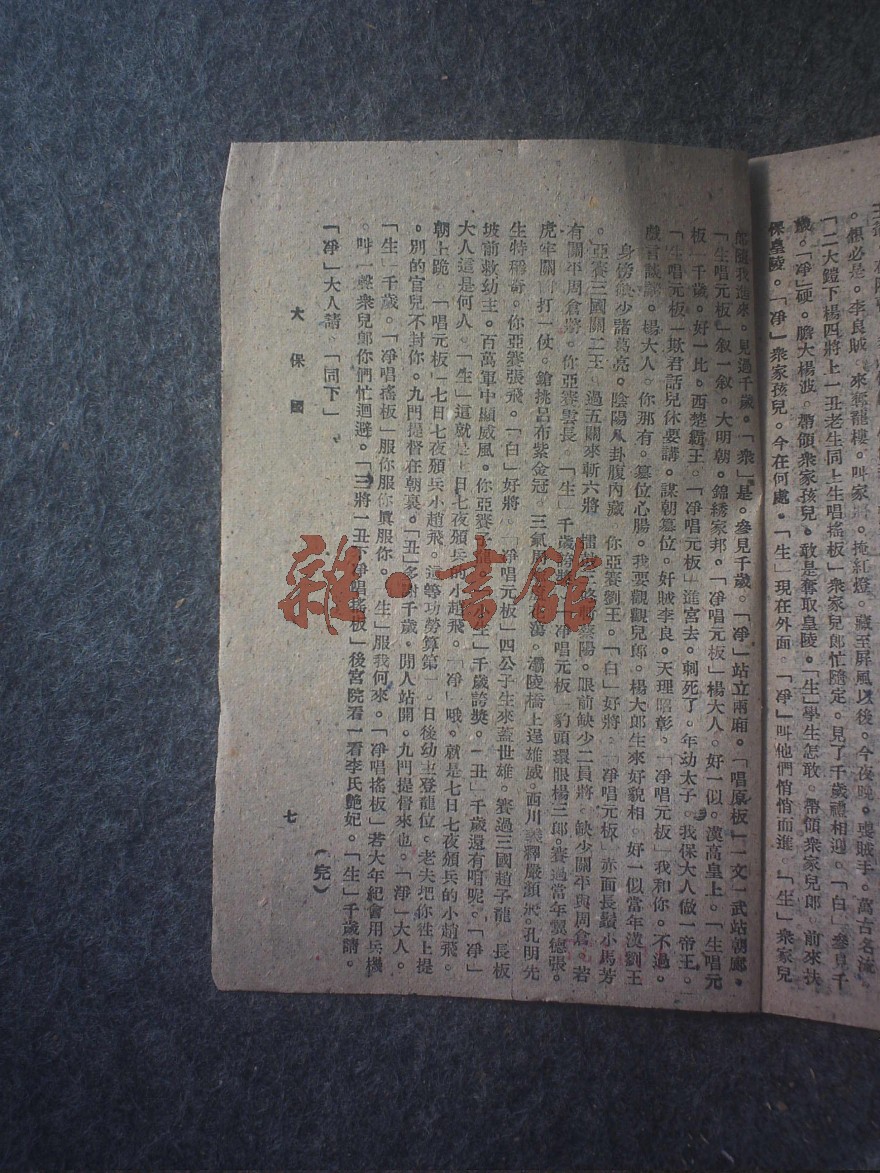 很必是。李良賊 來奪龍樓。叫家將。掩紅燈。藏至屏風以後。今夜晚。要賊手。萬古名流。
「二大鎧下楊四將上一丑老生同上生唱搖板」衆家兒郎忙隨定。見了千歲禮相迎。「白」參見千
歲。「凈」硬。膽大楊波。帶領衆家孩兒。敢是奪取皇陵。「生」學生怎敢。帶領衆家兒郎 前來扶
保皇陵。「凈」衆家孩兒。今在何處。「生」現在外面。「凈」叫他們悄悄而進 「生」衆家兒
郎隨我進來。見過千歲。「衆」是。參見千歲。「凈」站立兩廂。「唱原板」一文一武站朝廊。
「生唱元板」叙一叙。大明朝。錦綉家邦。「凈唱元板」楊大人。好一似。漢高皇上。「生唱元
板」千歲。好一比。西楚霸王。「凈唱元板」進宮去。刺死了。年幼太子。我保大人做一帝王。
「生唱元板」欺君話兒休要講。謀朝篡位。好賊李良。天理昭彰。「凈唱元板」我和你。不過。
戲言誠謬。楊大人。你那有。篡位心腸。我要觀觀兒郎。楊大郎生來好貌相。好一似當年漢劉王
身傍缺少諸葛亮。陰陽八卦腹內藏 你亞賽劉王。「白」好將。「凈唱元板」赤面長鬚小馬芳
。亞賽三國關二王。過五關來斬六將 擂鼓三 蔡陽。眼前缺少二員將。缺少關平與周倉。若
有關平周倉將。你亞賽雲長。「生」千歲誇獎。「凈唱元板」豹頭環眼楊三郎。賽過當年翼德張。
虎牢關 打一仗。鎗挑呂布紫金冠。三氣周 蕩。灞陵橋上逞雄威。西川義釋嚴顏 孔明先
生特稱奇。你亞賽張飛。「白」好將。「凈唱元板」四公子生來蓋世雄。賽過三國趙子龍 長板
坡前救幼主。百萬軍中顯威風。你亞賽子龍。「小生」千歲誇獎。「丑」千歲還有咱呢。「凈」
大人這是何人。「生」這就是七日七夜頒兵的小趙飛。「凈」哦。就是七日七夜頒兵的小趙飛。
朝上跪。「唱元板」七日七夜頒兵小趙飛。這等功勞算第一。日後幼主登龍位。老夫把你往上提
。別的官兒不封你。九門提督在朝裏。「丑」多謝千歲。閒人站開。九門提督來也。「淨」大人。
「生」千歲。「凈唱搖板」服你服你眞服你。「生」服我何來。「凈唱搖板」若大年紀會用兵機
。叫一聲衆兒郎你們忙迴避。「三將一丑下凈唱搖板」後宮院看一看李氏艷妃。「生」千歲請。
「凈」大人請。「同下」
(完)
大保國
七
雜·書館